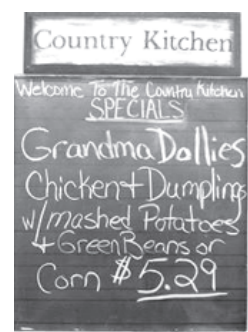 Country Kitchen
Welcome To The Country Kitchen
SPECIALS
Grandma Dollies
Chicken + Dumplings
w/mashed Potatoes
+ Green Beans or
Corn $5.29